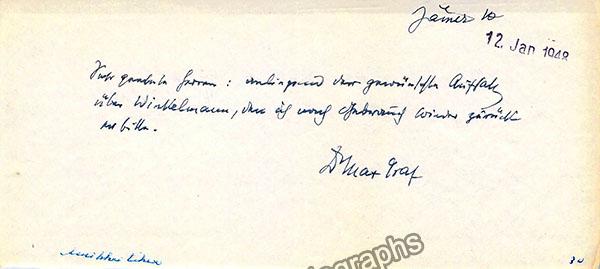 Jänner 10
12. Jan 1948
Sehr geehrte Herren: anliegend der gewünschte Aufsatz
über Winkelmann, den ich nach Gebrauch wieder zurück
erbitte.
Dr Max Graf
ographs